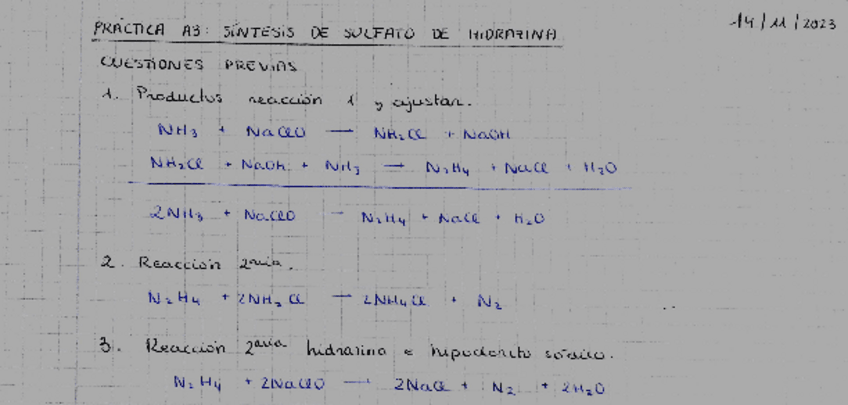 PRÁCTICA A3: SÍNTESIS DE SULFATO DE HIDRAZINA
14/11/2023
CUESTIONES PREVIAS
1. Productos reacción 1 y ajustar.
NH₃ + NaClO → NH₂Cl + NaOH
NH₂Cl + NaOH + NH₃ → N₂H₄ + NaCl + H₂O
2NH₃ + NaClO → N₂H₄ + NaCl + H₂O
2. Reacción 2ᵃʳⁱᵃ.
N₂H₄ + 2NH₂Cl → 2NH₄Cl + N₂
3. Reacción 2ᵃʳⁱᵃ hidrazina e hipoclorito sódico.
N₂H₄ + 2NaClO → 2NaCl + N₂ + 2H₂O